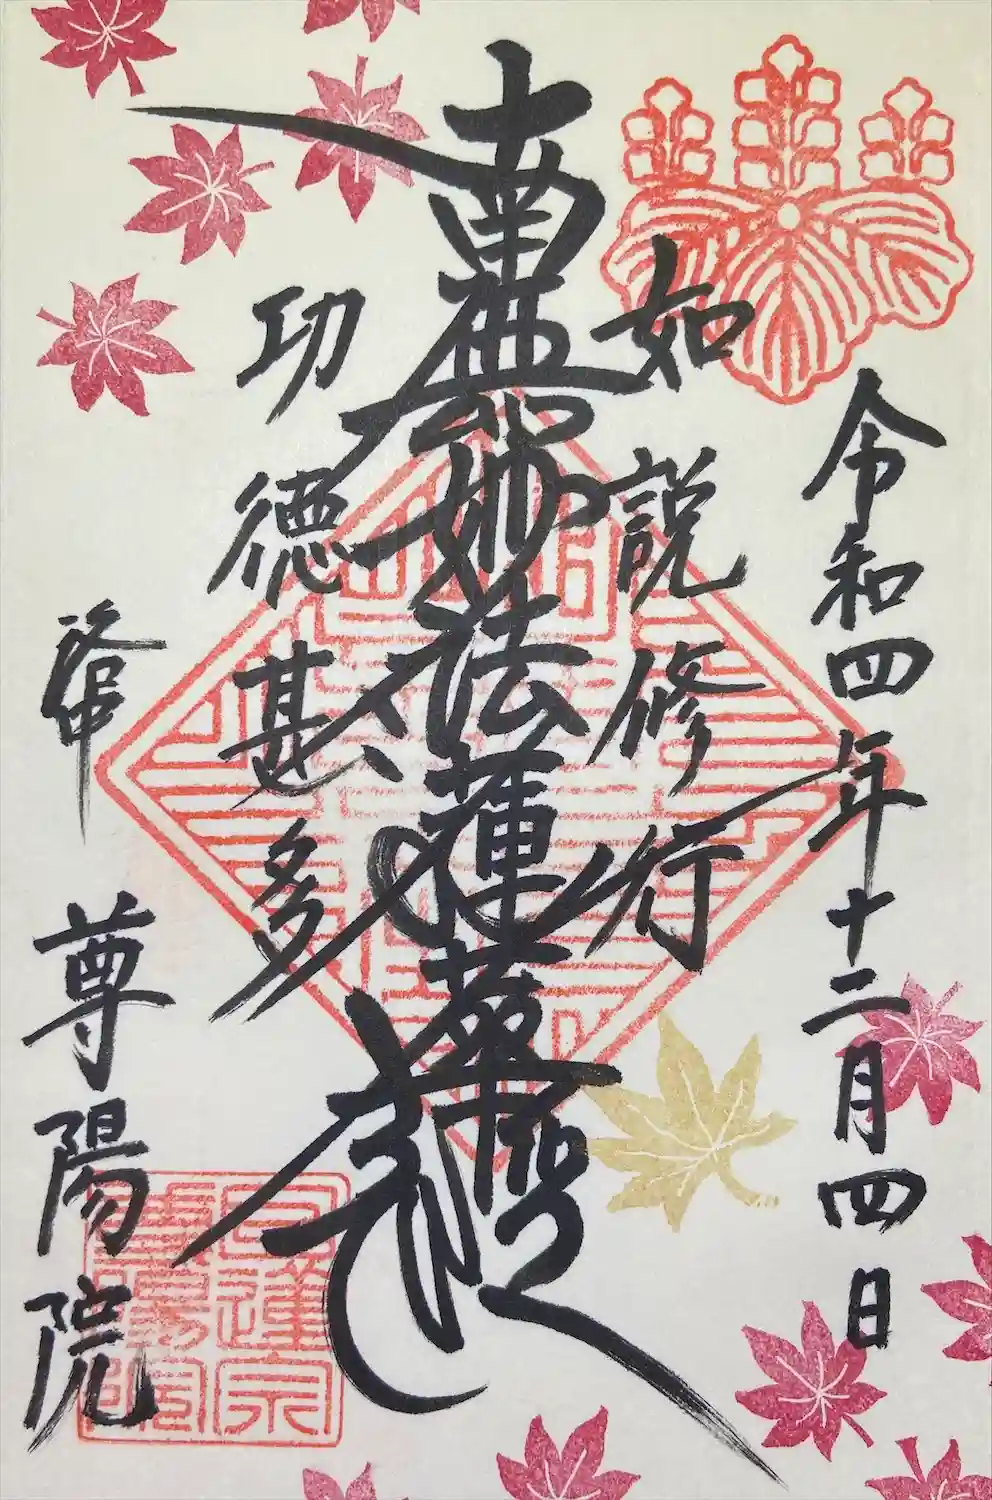 令和四年十二月四日
如説修行
南無妙法蓮華経
功徳甚多
尊陽院
日蓮宗
尊陽院